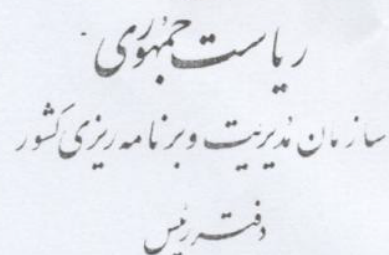 ریاست جمهوری
سازمان مدیریت و برنامه ریزی کشور
دفتر رئیس